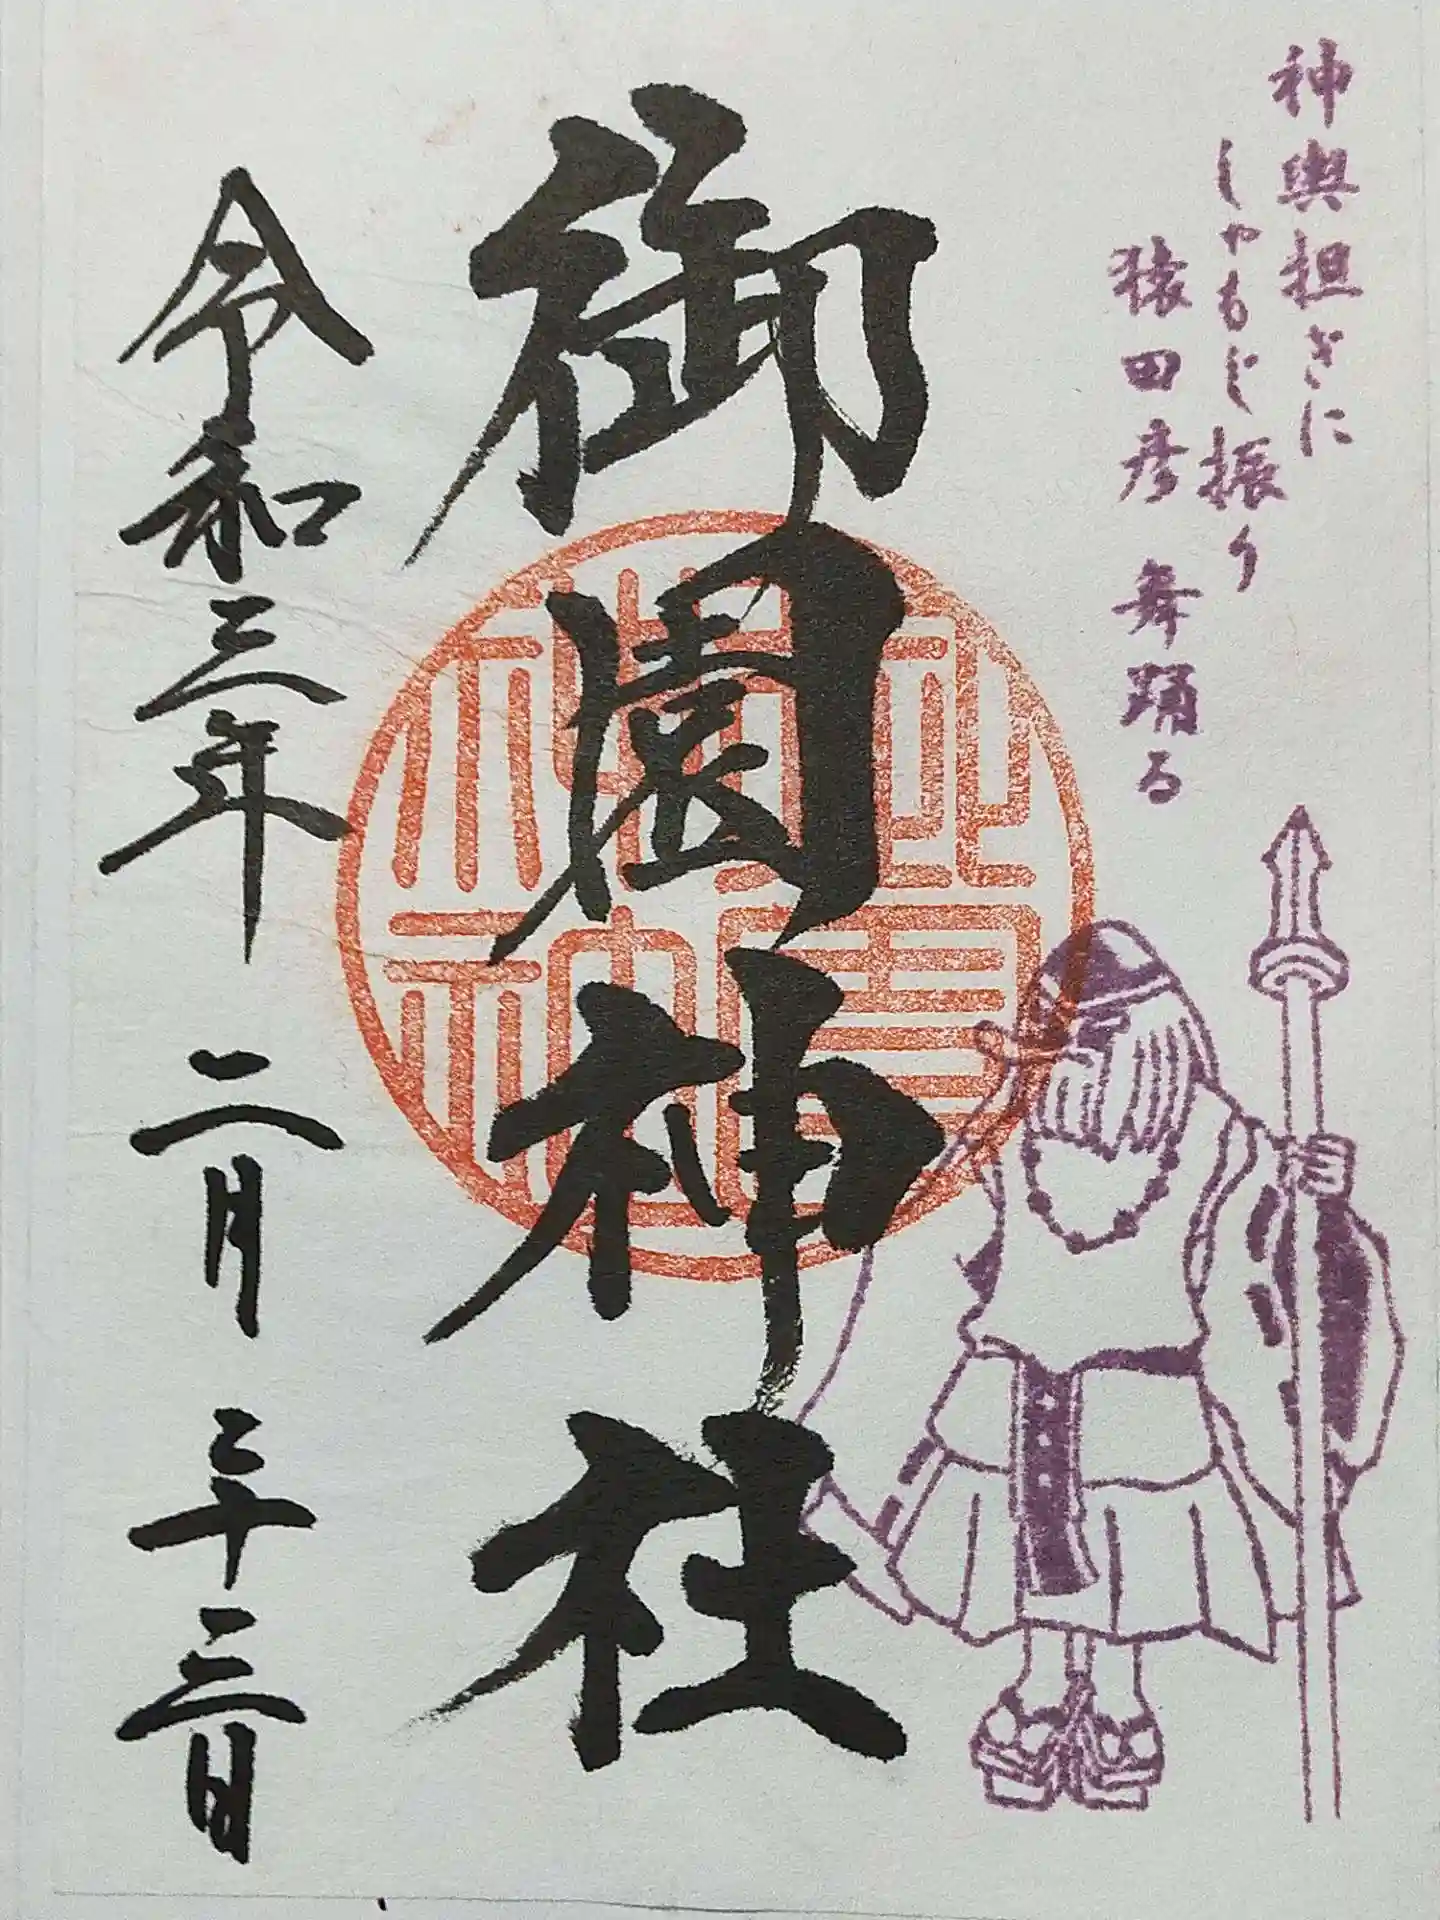 神輿担ぎに
しゃもじ振り
猿田彦舞踊る
御園神社
令和三年二月二十三日